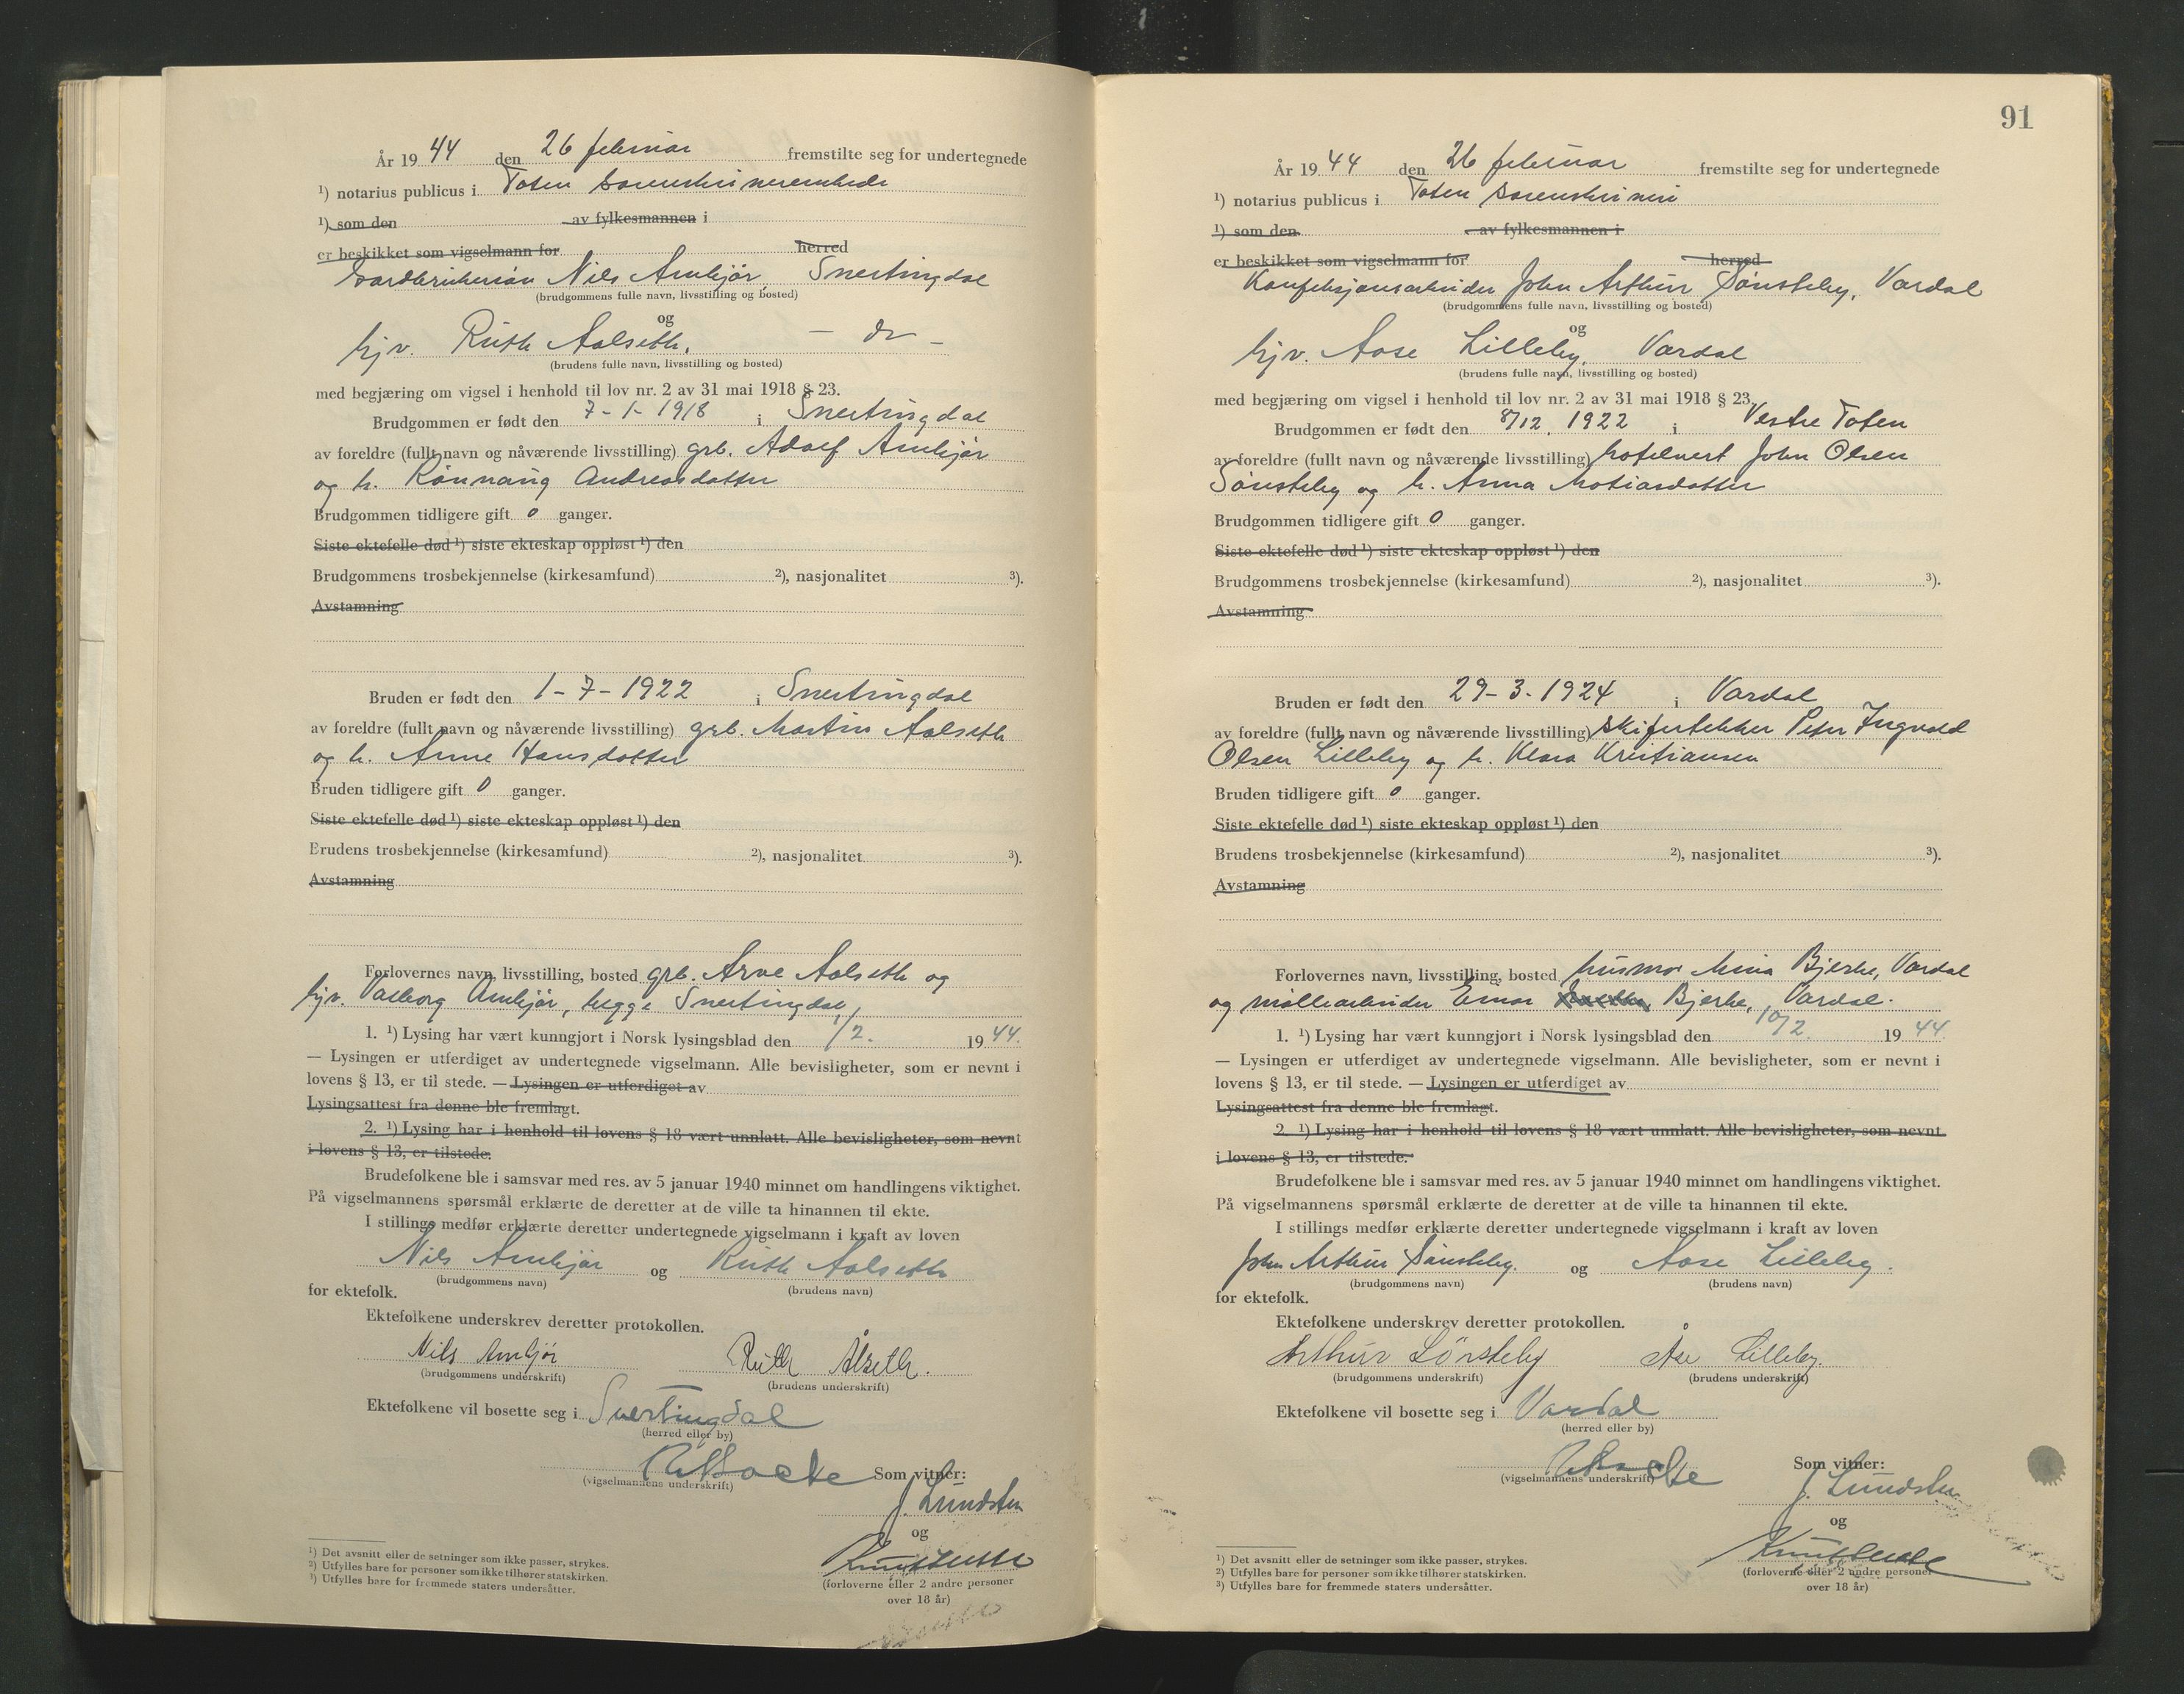 År 19 44 den 26 februar fremstilte seg for undertegnede
¹) notarius publicus i Toten sorenskriverembede
¹) som den av fylkesmannen i
er beskikket som vigselmann for herred
Gardbrukersøn Nils Amkjør, Snertingdal
(brudgommens fulle navn, livsstilling og bosted)
og
hjv. Ruth Aalseth, - do -
(brudens fulle navn, livsstilling og bosted)
med begjæring om vigsel i henhold til lov nr. 2 av 31 mai 1918 § 23.
Brudgommen er født den 7-1-1918 i Snertingdal
av foreldre (fullt navn og nåværende livsstilling) grb. Adolf Amkjør
og h. Rønnaug Andreasdatter
Brudgommen tidligere gift 0 ganger.
Siste ektefelle død ¹) siste ekteskap oppløst ¹) den
Brudgommens trosbekjennelse (kirkesamfund) ²), nasjonalitet ³).
Avstamning
Bruden er født den 1-7-1922 i Snertingdal
av foreldre (fullt navn og nåværende livsstilling) grb. Martin Aalseth
og h. Anne Hansdatter
Bruden tidligere gift 0 ganger.
Siste ektefelle død ¹) siste ekteskap oppløst ¹) den
Brudens trosbekjennelse (kirkesamfund) ²), nasjonalitet ³).
Avstamning
Forlovernes navn, livsstilling, bosted grb. Arve Aalseth og
hjv. Valborg Amkjør, begge Snertingdal,
1. ¹) Lysing har vært kunngjort i Norsk lysingsblad den 1/2. 19 44.
— Lysingen er utferdiget av undertegnede vigselmann. Alle bevisligheter, som er nevnt i
lovens § 13, er til stede. — Lysingen er utferdiget av
Lysingsattest fra denne ble fremlagt.
2. ¹) Lysing har i henhold til lovens § 18 vært unnlatt. Alle bevisligheter, som nevnt
i lovens § 13, er tilstede.
Brudefolkene ble i samsvar med res. av 5 januar 1940 minnet om handlingens viktighet.
På vigselmannens spørsmål erklærte de deretter at de ville ta hinannen til ekte.
I stillings medfør erklærte deretter undertegnede vigselmann i kraft av loven
Nils Amkjør og Ruth Aalseth
(brudgommens navn) (brudens navn)
for ektefolk.
Ektefolkene underskrev deretter protokollen.
Nils Amkjør Ruth Ålseth.
(brudgommens underskrift) (brudens underskrift)
Ektefolkene vil bosette seg i Snertingdal
(herred eller by)
Som vitner:
(vigselmannens underskrift)
J. Lundsten
og
(forloverne eller 2 andre personer
over 18 år)
¹) Det avsnitt eller de setninger som ikke passer, strykes.
²) Utfylles bare for personer som ikke tilhører statskirken.
³) Utfylles bare for fremmede staters undersåtter.
91
År 19 44 den 26 februar fremstilte seg for undertegnede
¹) notarius publicus i Toten sorenskriveri
¹) som den av fylkesmannen i
er beskikket som vigselmann for herred
Konfeksjonsarbeider John Arthur Sønsteby, Vardal
(brudgommens fulle navn, livsstilling og bosted)
og
hjv. Aase Lilleby, Vardal
(brudens fulle navn, livsstilling og bosted)
med begjæring om vigsel i henhold til lov nr. 2 av 31 mai 1918 § 23.
Brudgommen er født den 8/12. 1922 i Vestre Toten
av foreldre (fullt navn og nåværende livsstilling) hotelvert John Olsen
Sønsteby og h. Anna Matiasdatter
Brudgommen tidligere gift 0 ganger.
Siste ektefelle død ¹) siste ekteskap oppløst ¹) den
Brudgommens trosbekjennelse (kirkesamfund) ²), nasjonalitet ³).
Avstamning
Bruden er født den 29-3-1924 i Vardal
av foreldre (fullt navn og nåværende livsstilling) skifertekker Peter Ingvald
Olsen Lilleby og h. Klara Kristiansen
Bruden tidligere gift 0 ganger.
Siste ektefelle død ¹) siste ekteskap oppløst ¹) den
Brudens trosbekjennelse (kirkesamfund) ²), nasjonalitet ³).
Avstamning
Forlovernes navn, livsstilling, bosted husmor Mina Bjerke, Vardal
og møllearbeider Einar Bjerke, Vardal.
1. ¹) Lysing har vært kunngjort i Norsk lysingsblad den 10/2. 19 44.
— Lysingen er utferdiget av undertegnede vigselmann. Alle bevisligheter, som er nevnt i
lovens § 13, er til stede. — Lysingen er utferdiget av
Lysingsattest fra denne ble fremlagt.
2. ¹) Lysing har i henhold til lovens § 18 vært unnlatt. Alle bevisligheter, som nevnt
i lovens § 13, er tilstede.
Brudefolkene ble i samsvar med res. av 5 januar 1940 minnet om handlingens viktighet.
På vigselmannens spørsmål erklærte de deretter at de ville ta hinannen til ekte.
I stillings medfør erklærte deretter undertegnede vigselmann i kraft av loven
John Arthur Sønsteby. og Aase Lilleby.
(brudgommens navn) (brudens navn)
for ektefolk.
Ektefolkene underskrev deretter protokollen.
Arthur Sønsteby Åse Lilleby.
(brudgommens underskrift) (brudens underskrift)
Ektefolkene vil bosette seg i Vardal
(herred eller by)
Som vitner:
(vigselmannens underskrift)
J. Lundsten
og
(forloverne eller 2 andre personer
over 18 år)
¹) Det avsnitt eller de setninger som ikke passer, strykes.
²) Utfylles bare for personer som ikke tilhører statskirken.
³) Utfylles bare for fremmede staters undersåtter.